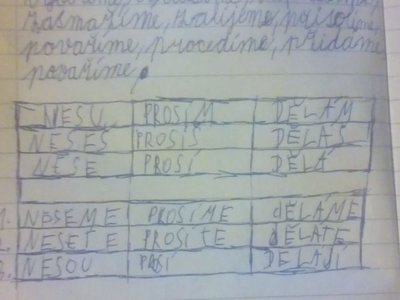 zasmažíme, svaříme,
povaříme, procedíme, přidáme
povaříme,
NESU PROSÍM DĚLÁM
NESEŠ PROSÍŠ DĚLÁŠ
NESE PROSÍ DĚLÁ
NESEME PROSÍME dĚLÁME
NESETE PROSÍTE DĚLÁTE
3. NESOU DĚLAJÍ